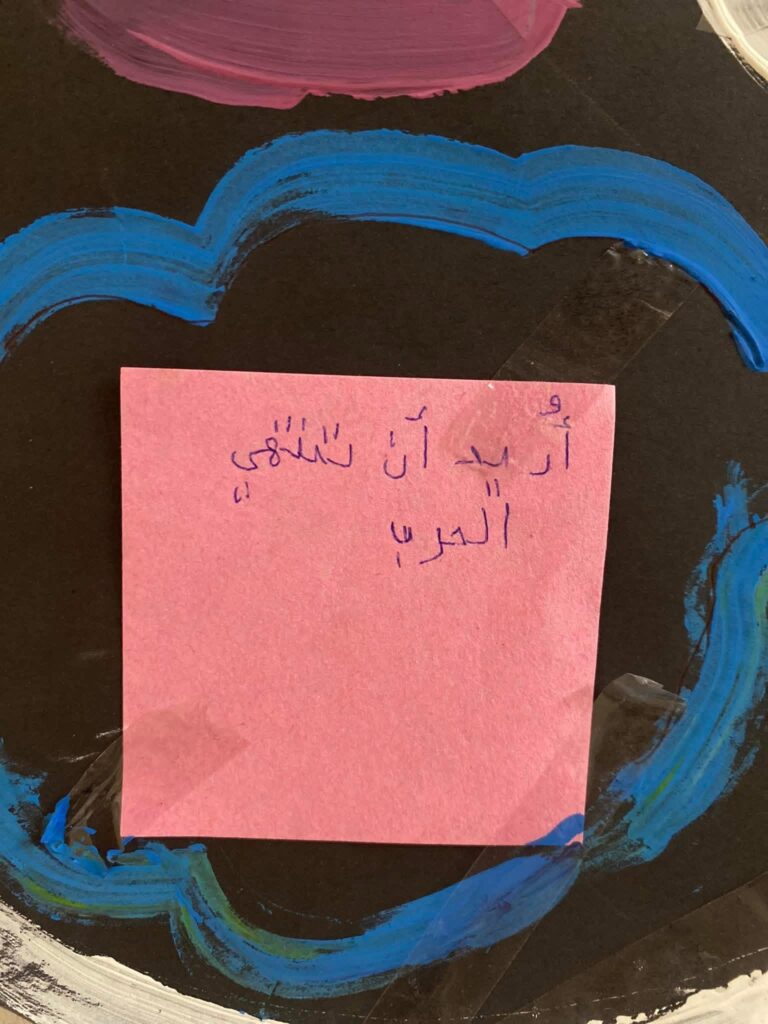 أُريد أن تنتهي
الحرب